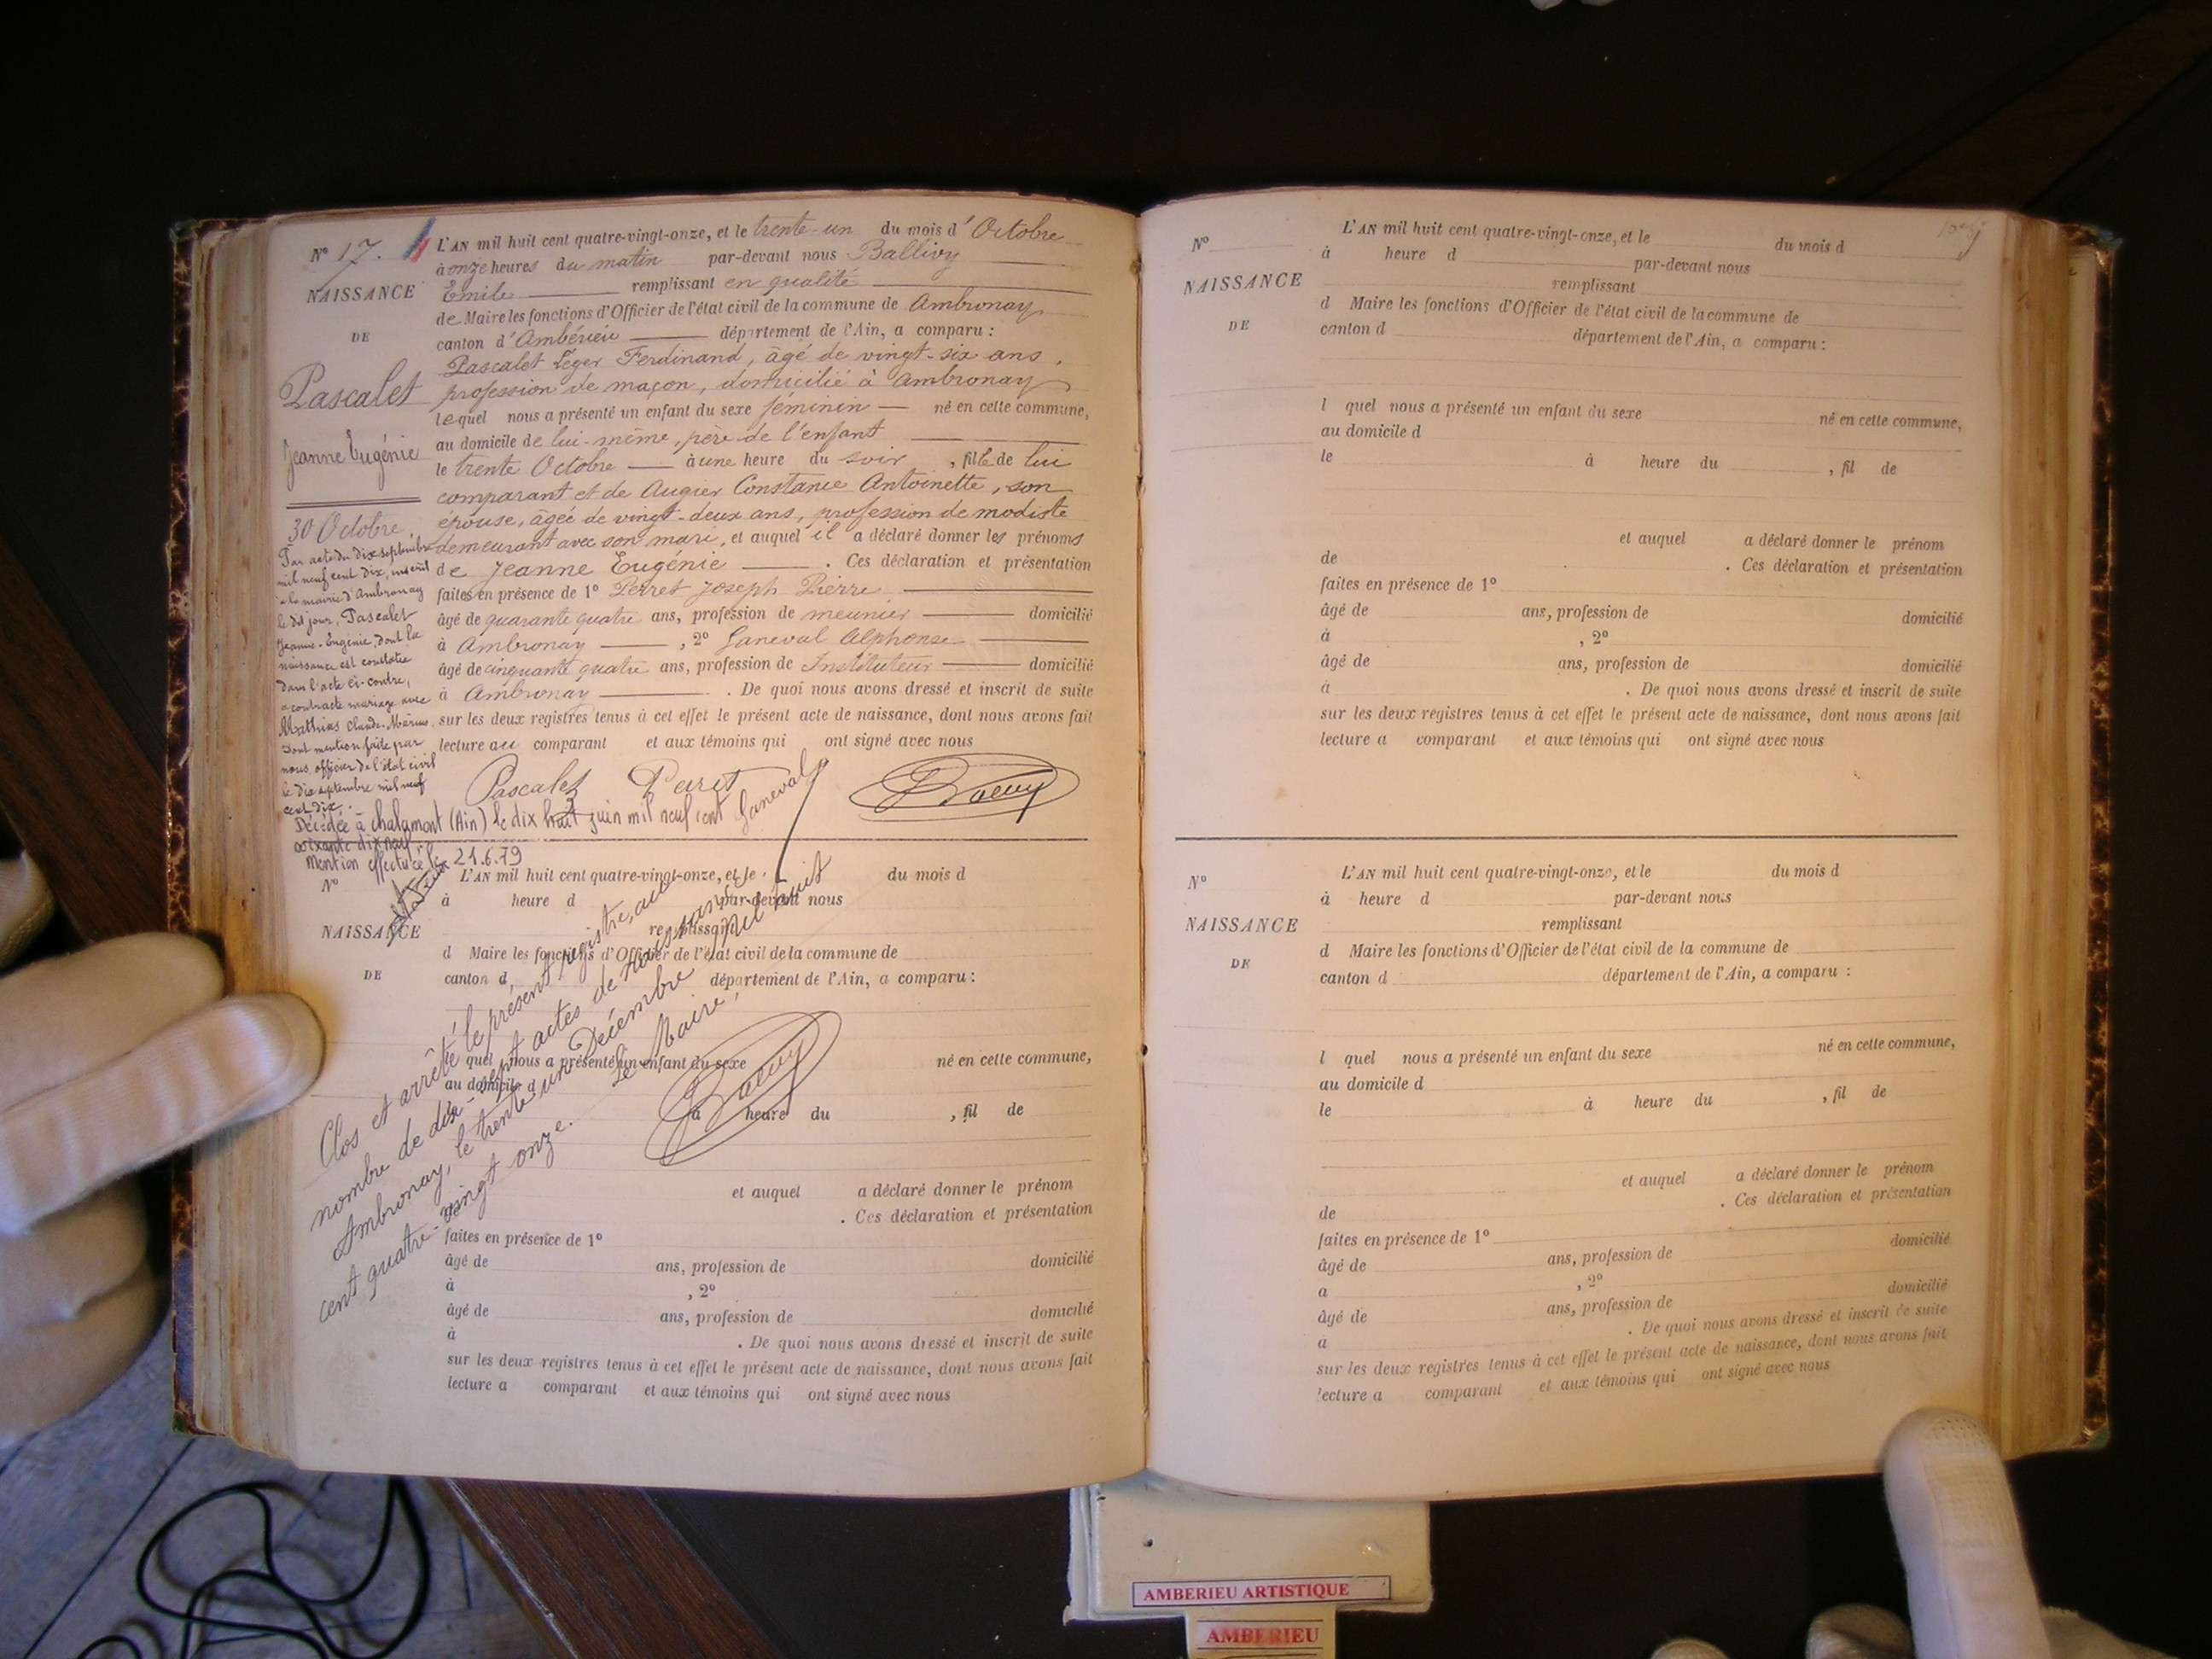 N° 17.
NAISSANCE
DE
Pascalet
Jeanne Eugénie
30 Octobre
Par acte du dix septembre
mil neuf cent dix, inscrit
à la mairie d'Ambronay
le dit jour, Pascalet
Jeanne-Eugénie, dont la
naissance est constatée
dans l'acte ci-contre,
a contracté mariage avec
Mathias Claude-Marius
Dont mention faite par
nous officier de l'état civil
le dix septembre mil neuf
cent dix.
L'AN mil huit cent quatre-vingt-onze, et le trente-un du mois d'Octobre
à onze heures du matin par-devant nous Ballivy
Emile remplissant en qualité
de Maire les fonctions d'Officier de l'état civil de la commune de Ambronay
canton d'Ambérieu département de l'Ain, a comparu :
Pascalet Léger Ferdinand, âgé de vingt-six ans,
profession de maçon, domicilié à Ambronay
lequel nous a présenté un enfant du sexe féminin né en cette commune,
au domicile de lui-même, père de l'enfant
le trente Octobre à une heure du soir, fille de lui
comparant et de Augier Constance Antoinette, son
épouse, âgée de vingt-deux ans, profession de modiste
demeurant avec son mari, et auquel il a déclaré donner les prénoms
de Jeanne Eugénie . Ces déclaration et présentation
faites en présence de 1° Perret Joseph Pierre
âgé de quarante quatre ans, profession de meunier domicilié
à Ambronay , 2° Laneval Alphonse
âgé de cinquante quatre ans, profession de Instituteur domicilié
à Ambronay . De quoi nous avons dressé et inscrit de suite
sur les deux registres tenus à cet effet le présent acte de naissance, dont nous avons fait
lecture au comparant et aux témoins qui ont signé avec nous
Pascalet Laneval
Décédée à Chalamont (Ain) le dix huit juin mil neuf cent
soixante dix neuf.
Mention effectuée le 21.6.79
N°
NAISSANCE
DE
L'AN mil huit cent quatre-vingt-onze, et le du mois d
à heure d par-devant nous
remplissant
d Maire les fonctions d'Officier de l'état civil de la commune de
canton d département de l'Ain, a comparu :
l quel nous a présenté un enfant du sexe né en cette commune,
au domicile d
à heure du , fil de
et auquel a déclaré donner le prénom
. Ces déclaration et présentation
faites en présence de 1°
âgé de ans, profession de domicilié
à , 2°
âgé de ans, profession de domicilié
à . De quoi nous avons dressé et inscrit de suite
sur les deux registres tenus à cet effet le présent acte de naissance, dont nous avons fait
lecture a comparant et aux témoins qui ont signé avec nous
Clos et arrêté le présent registre, au
nombre de dix-sept actes de naissance
Ambronay, le trente-un Décembre mil huit
cent quatre-vingt onze. Le Maire,
N°
NAISSANCE
DE
L'AN mil huit cent quatre-vingt-onze, et le du mois d
à heure d par-devant nous
remplissant
d Maire les fonctions d'Officier de l'état civil de la commune de
canton d département de l'Ain, a comparu :
l quel nous a présenté un enfant du sexe né en cette commune,
au domicile d
le à heure du , fil de
et auquel a déclaré donner le prénom
de . Ces déclaration et présentation
faites en présence de 1°
âgé de ans, profession de domicilié
à , 2°
âgé de ans, profession de domicilié
à . De quoi nous avons dressé et inscrit de suite
sur les deux registres tenus à cet effet le présent acte de naissance, dont nous avons fait
lecture a comparant et aux témoins qui ont signé avec nous
N°
NAISSANCE
DE
L'AN mil huit cent quatre-vingt-onze, et le du mois d
à heure d par-devant nous
remplissant
d Maire les fonctions d'Officier de l'état civil de la commune de
canton d département de l'Ain, a comparu :
l quel nous a présenté un enfant du sexe né en cette commune,
au domicile d
le à heure du , fil de
et auquel a déclaré donner le prénom
de . Ces déclaration et présentation
faites en présence de 1°
âgé de ans, profession de domicilié
a , 2° domicilié
âgé de ans, profession de
a . De quoi nous avons dressé et inscrit de suite
sur les deux registres tenus à cet effet le présent acte de naissance, dont nous avons fait
lecture a comparant et aux témoins qui ont signé avec nous
AMBERIEU ARTISTIQUE
AMBERIEU